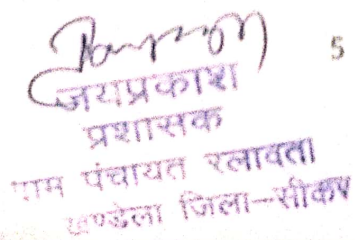 5
जयप्रकाश
प्रशासक
ग्राम पंचायत रलावता
खण्डेला जिला-सीकर